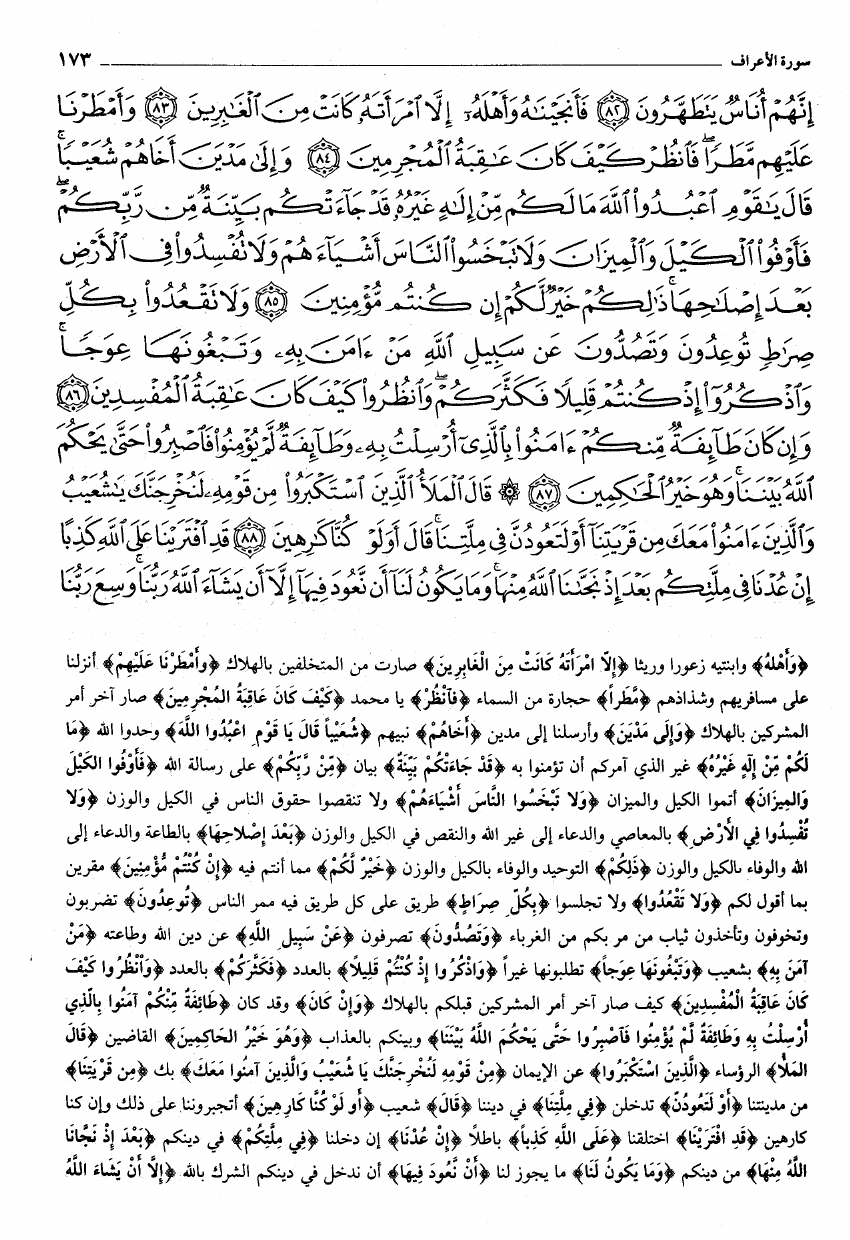 سورة الأعراف ١٧٣
إِنَّهُمْ أُنَاسٌ يَتَطَهَّرُونَ ﴿٨٢﴾ فَأَنجَيْنَٰهُ وَأَهْلَهُۥٓ إِلَّا ٱمْرَأَتَهُۥ كَانَتْ مِنَ ٱلْغَٰبِرِينَ ﴿٨٣﴾ وَأَمْطَرْنَا
عَلَيْهِم مَّطَرًاۖ فَٱنظُرْ كَيْفَ كَانَ عَٰقِبَةُ ٱلْمُجْرِمِينَ ﴿٨٤﴾ وَإِلَىٰ مَدْيَنَ أَخَاهُمْ شُعَيْبًاۚ
قَالَ يَٰقَوْمِ ٱعْبُدُوا۟ ٱللَّهَ مَا لَكُم مِّنْ إِلَٰهٍ غَيْرُهُۥ قَدْ جَآءَتْكُم بَيِّنَةٌ مِّن رَّبِّكُمْۖ
فَأَوْفُوا۟ ٱلْكَيْلَ وَٱلْمِيزَانَ وَلَا تَبْخَسُوا۟ ٱلنَّاسَ أَشْيَآءَهُمْ وَلَا تُفْسِدُوا۟ فِى ٱلْأَرْضِ
بَعْدَ إِصْلَٰحِهَاۚ ذَٰلِكُمْ خَيْرٌ لَّكُمْ إِن كُنتُم مُّؤْمِنِينَ ﴿٨٥﴾ وَلَا تَقْعُدُوا۟ بِكُلِّ
صِرَٰطٍ تُوعِدُونَ وَتَصُدُّونَ عَن سَبِيلِ ٱللَّهِ مَنْ ءَامَنَ بِهِۦ وَتَبْغُونَهَا عِوَجًاۚ
وَٱذْكُرُوٓا۟ إِذْ كُنتُمْ قَلِيلًا فَكَثَّرَكُمْۖ وَٱنظُرُوا۟ كَيْفَ كَانَ عَٰقِبَةُ ٱلْمُفْسِدِينَ ﴿٨٦﴾
وَإِن كَانَ طَآئِفَةٌ مِّنكُمْ ءَامَنُوا۟ بِٱلَّذِىٓ أُرْسِلْتُ بِهِۦ وَطَآئِفَةٌ لَّمْ يُؤْمِنُوا۟ فَٱصْبِرُوا۟ حَتَّىٰ يَحْكُمَ
ٱللَّهُ بَيْنَنَاۚ وَهُوَ خَيْرُ ٱلْحَٰكِمِينَ ﴿٨٧﴾ ۞ قَالَ ٱلْمَلَأُ ٱلَّذِينَ ٱسْتَكْبَرُوا۟ مِن قَوْمِهِۦ لَنُخْرِجَنَّكَ يَٰشُعَيْبُ
وَٱلَّذِينَ ءَامَنُوا۟ مَعَكَ مِن قَرْيَتِنَآ أَوْ لَتَعُودُنَّ فِى مِلَّتِنَاۚ قَالَ أَوَلَوْ كُنَّا كَٰرِهِينَ ﴿٨٨﴾ قَدِ ٱفْتَرَيْنَا عَلَى ٱللَّهِ كَذِبًا
إِنْ عُدْنَا فِى مِلَّتِكُم بَعْدَ إِذْ نَجَّىٰنَا ٱللَّهُ مِنْهَاۚ وَمَا يَكُونُ لَنَآ أَن نَّعُودَ فِيهَآ إِلَّآ أَن يَشَآءَ ٱللَّهُ رَبُّنَاۚ وَسِعَ رَبُّنَا
﴿وَأَهْلَهُ﴾ وابنتيه زعورا وريثا ﴿إِلّا امْرَأَتَهُ كَانَتْ مِنَ الْغَابِرِينَ﴾ صارت من المتخلفين بالهلاك ﴿وأَمْطَرْنَا عَلَيْهِمْ﴾ أنزلنا
على مسافريهم وشذاذهم ﴿مَّطَراً﴾ حجارة من السماء ﴿فَآنْظُرْ﴾ يا محمد ﴿كَيْفَ كَانَ عَاقِبَةُ المُجْرِمِينَ﴾ صار آخر أمر
المشركين بالهلاك ﴿وَإِلَى مَدْيَنَ﴾ وأرسلنا إلى مدين ﴿أَخَاهُمْ﴾ نبيهم ﴿شُعَيْباً قَالَ يَا قَوْمِ اعْبُدُوا اللَّهَ﴾ وحدوا الله ﴿مَا
لَكُمْ مِّنْ إِلَهٍ غَيْرُهُ﴾ غير الذي آمركم أن تؤمنوا به ﴿قَدْ جَاءَتْكُمْ بَيِّنَةٌ﴾ بيان ﴿مِّنْ رَّبِّكُمْ﴾ على رسالة الله ﴿فَأَوْفُوا الكَيْلَ
وَالمِيزَانَ﴾ أتموا الكيل والميزان ﴿وَلَا تَبْخَسُوا النَّاسَ أَشْيَاءَهُمْ﴾ ولا تنقصوا حقوق الناس في الكيل والوزن ﴿وَلَا
تُفْسِدُوا فِي الأَرْضِ﴾ بالمعاصي والدعاء إلى غير الله والنقص في الكيل والوزن ﴿بَعْدَ إِصْلَاحِهَا﴾ بالطاعة والدعاء إلى
الله والوفاء بالكيل والوزن ﴿ذَلِكُمْ﴾ التوحيد والوفاء بالكيل والوزن ﴿خَيْرٌ لَّكُمْ﴾ مما أنتم فيه ﴿إِنْ كُنْتُمْ مُّؤْمِنِينَ﴾ مقرين
بما أقول لكم ﴿وَلَا تَقْعُدُوا﴾ ولا تجلسوا ﴿بِكُلِّ صِرَاطٍ﴾ طريق على كل طريق فيه ممر الناس ﴿تُوعِدُونَ﴾ تضربون
وتخوفون وتأخذون ثياب من مر بكم من الغرباء ﴿وَتَصُدُّونَ﴾ تصرفون ﴿عَنْ سَبِيلِ اللَّهِ﴾ عن دين الله وطاعته ﴿مَنْ
آمَنَ بِهِ﴾ بشعيب ﴿وَتَبْغُونَهَا عِوَجاً﴾ تطلبونها غيراً ﴿وَاذْكُرُوا إِذْ كُنْتُمْ قَلِيلًا﴾ بالعدد ﴿فَكَثَّرَكُمْ﴾ بالعدد ﴿وَآنْظُرُوا كَيْفَ
كَانَ عَاقِبَةُ الْمُفْسِدِينَ﴾ كيف صار آخر أمر المشركين قبلكم بالهلاك ﴿وَإِنْ كَانَ﴾ وقد كان ﴿طَائِفَةٌ مِّنْكُمْ آمَنُوا بِالَّذِي
أُرْسِلْتُ بِهِ وَطَائِفَةٌ لَّمْ يُؤْمِنُوا فَآصْبِرُوا حَتَّى يَحْكُمَ اللَّهُ بَيْنَنَا﴾ وبينكم بالعذاب ﴿وَهُوَ خَيْرُ الحَاكِمِينَ﴾ القاضين ﴿قَالَ
المَلأُ﴾ الرؤساء ﴿الَّذِينَ اسْتَكْبَرُوا﴾ عن الإيمان ﴿مِنْ قَوْمِهِ لَنُخْرِجَنَّكَ يَا شُعَيْبُ وَالَّذِينَ آمَنُوا مَعَكَ﴾ بك ﴿مِن قَرْيَتِنَا﴾
من مدينتنا ﴿أَوْ لَتَعُودُنَّ﴾ تدخلن ﴿فِي مِلَّتِنَا﴾ في ديننا ﴿قَالَ﴾ شعيب ﴿أَو لَوْ كُنَّا كَارِهِينَ﴾ أتجبروننا على ذلك وإن كنا
كارهين ﴿قَدِ افْتَرَيْنَا﴾ اختلقنا ﴿عَلَى اللَّهِ كَذِباً﴾ باطلاً ﴿إِنْ عُدْنَا﴾ إن دخلنا ﴿فِي مِلَّتِكُمْ﴾ في دينكم ﴿بَعْدَ إِذْ نَجَّانَا
اللَّهُ مِنْهَا﴾ من دينكم ﴿وَمَا يَكُونُ لَنَا﴾ ما يجوز لنا ﴿أَنْ نَّعُودَ فِيهَا﴾ أن ندخل في دينكم الشرك بالله ﴿إِلَّا أَنْ يَشَاءَ اللَّهُ